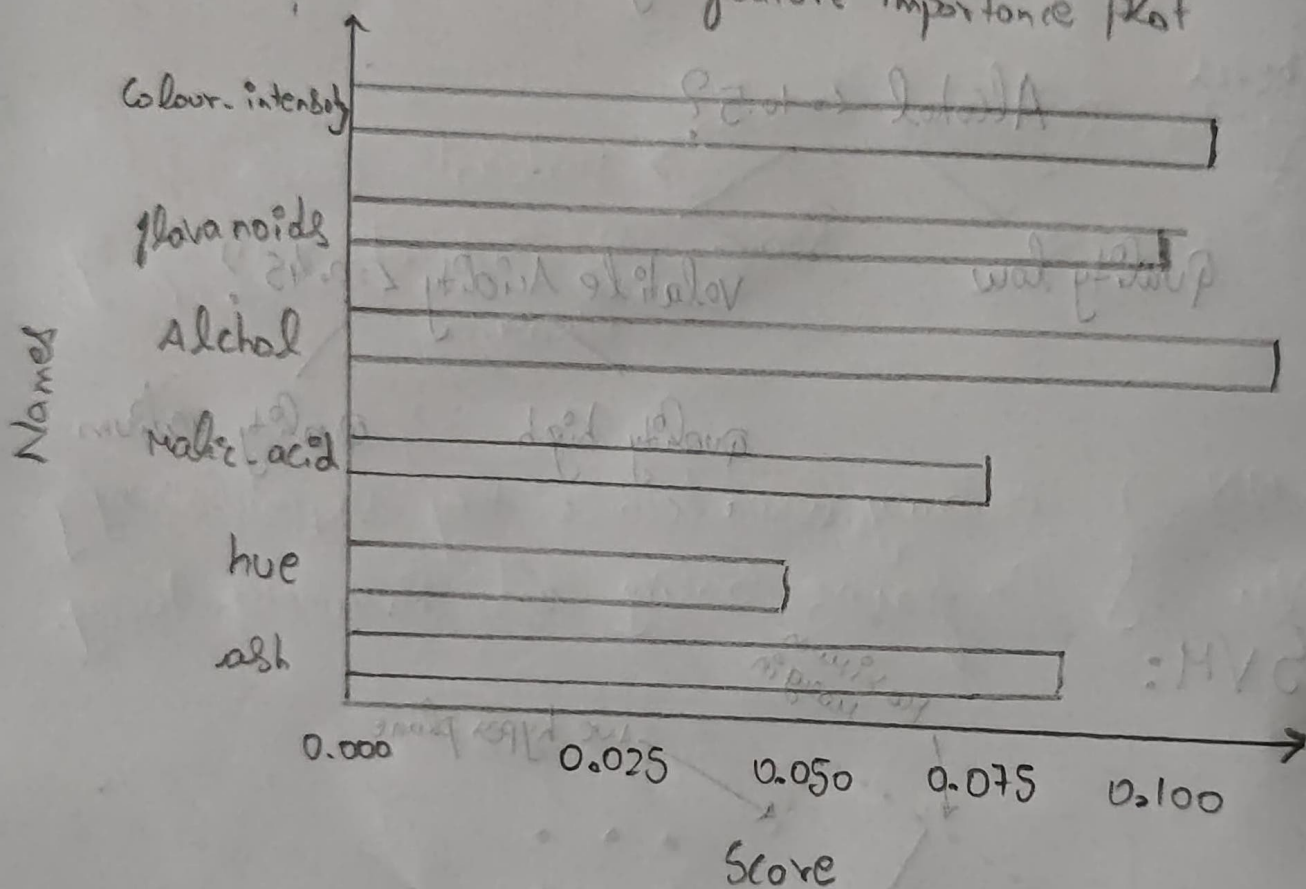 feature importance plot
Colour-intensity
flavanoids
Alchol
Malic-acid
hue
ash
Names
0.000 0.025 0.050 0.075 0.100
Score